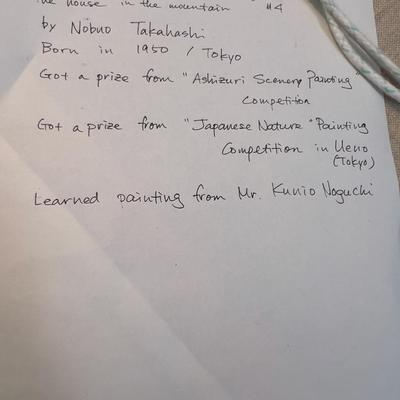 The house in the mountain #4
by Nobuo Takahashi
Born in 1950 / Tokyo
Got a prize from "Ashizuri Scenery Painting"
Competition
Got a prize from "Japanese Nature" Painting
Competition in Ueno
(Tokyo)
Learned painting from Mr. Kunio Noguchi